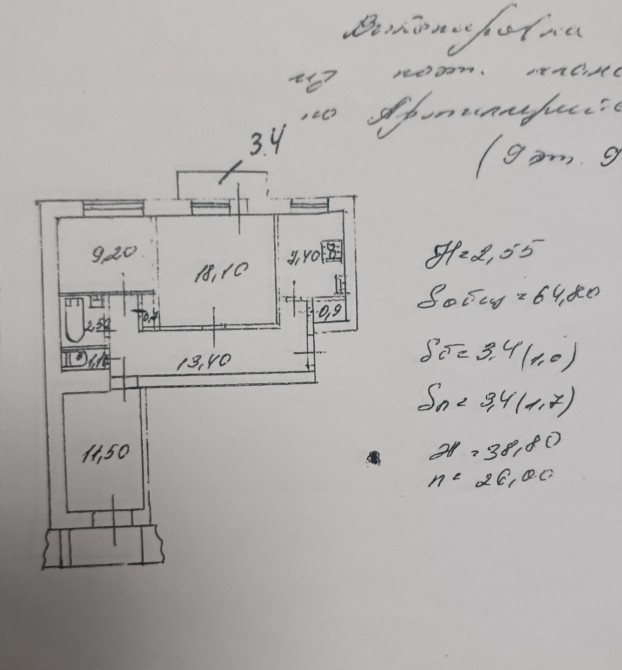 Выкопировка
из поэт. плана
по Артиллерийс
(9 эт. 9
3.4
9,20
18,10
7,40
0,9
2,50
1,10
13,40
11,50
H=2,55
Sобщ=64,80
Sб=3.4(1,0)
Sл=3,4(1,7)
Ж=38,80
п=26,00